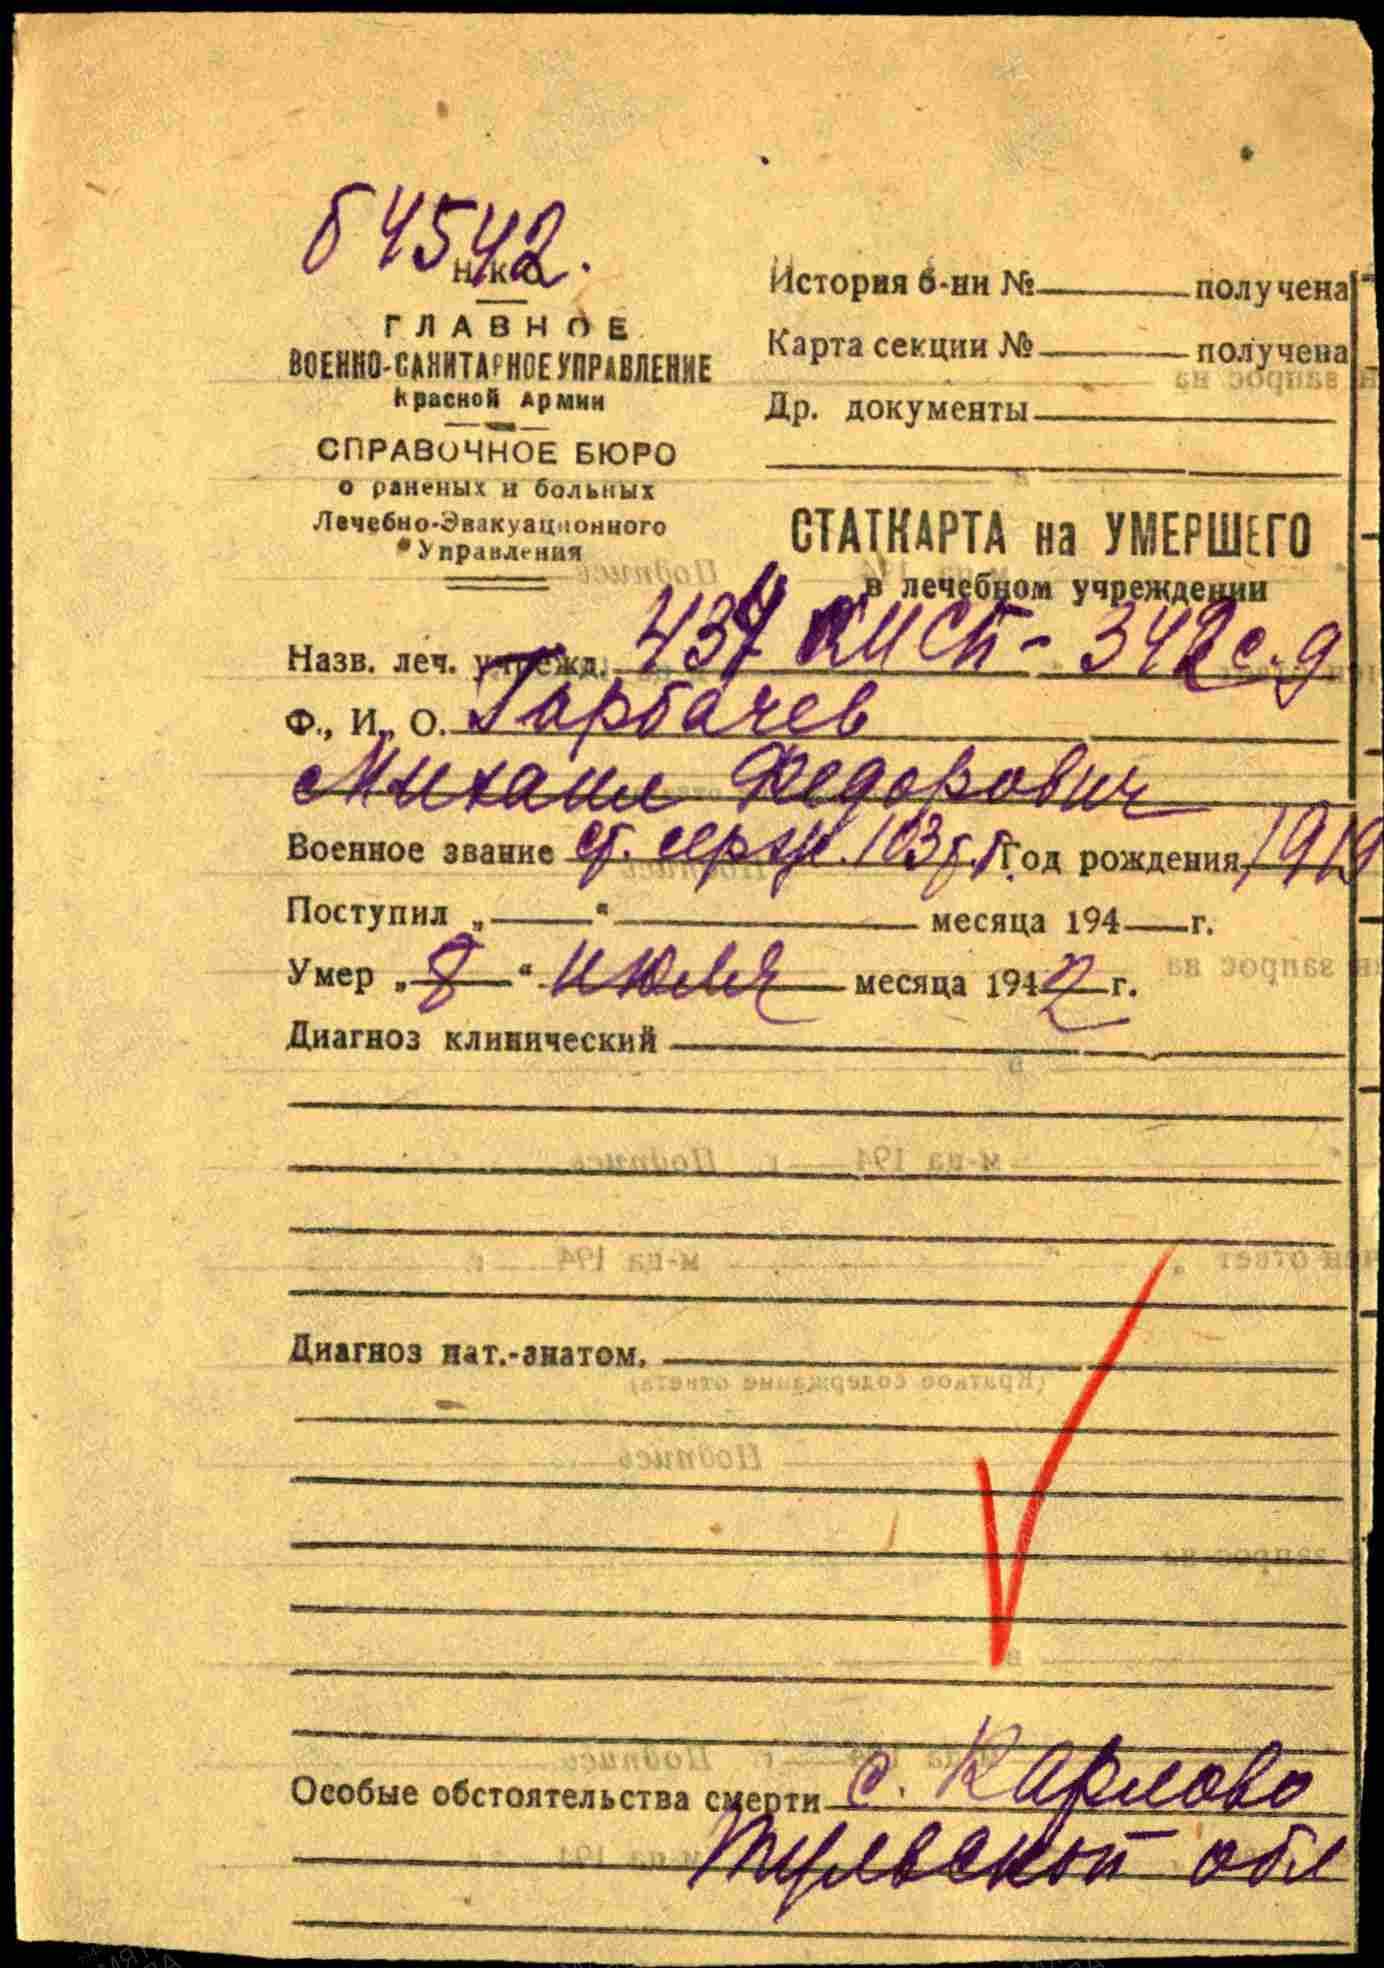 64542.
НКО
ГЛАВНОЕ
ВОЕННО-САНИТАРНОЕ УПРАВЛЕНИЕ
Красной Армии
СПРАВОЧНОЕ БЮРО
о раненых и больных
Лечебно-Эвакуационного
Управления
История б-ни № получена
Карта секции № получена
Др. документы
СТАТКАРТА на УМЕРШЕГО
в лечебном учреждении
Назв. леч. учрежд. 437 - 342 с.д
Ф., И., О. Гарбачев
Михаил Федорович
Военное звание ст. серж. 103 Год рождения 1919
Поступил „ “ месяца 194 г.
Умер „ 8 “ июля месяца 1942 г.
Диагноз клинический
Диагноз пат.-анатом.
Особые обстоятельства смерти с. Карлово
Тульской обл